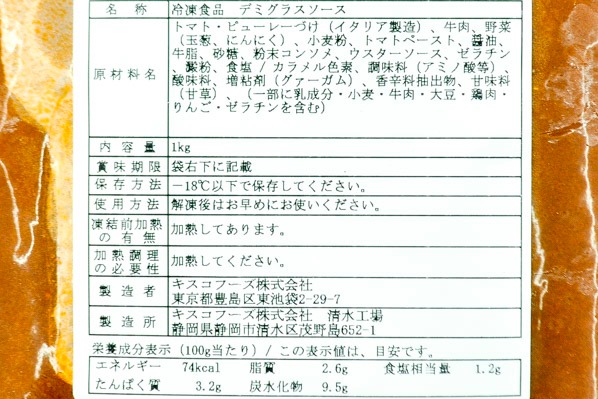 名称 冷凍食品 デミグラスソース
原材料名 トマト・ピューレーづけ（イタリア製造）、牛肉、野菜
（玉葱、にんにく）、小麦粉、トマトペースト、醤油、
牛脂、砂糖、粉末コンソメ、ウスターソース、ゼラチン、
澱粉、食塩 / カラメル色素、調味料（アミノ酸等）、
酸味料、増粘剤（グァーガム）、香辛料抽出物、甘味料
（甘草）、（一部に乳成分・小麦・牛肉・大豆・鶏肉・
りんご・ゼラチンを含む）
内容量 1kg
賞味期限 袋右下に記載
保存方法 －18℃以下で保存してください。
使用方法 解凍後はお早めにお使いください。
凍結前加熱
の有無 加熱してあります。
加熱調理
の必要性 加熱してください。
製造者 キスコフーズ株式会社
東京都豊島区東池袋2-29-7
製造所 キスコフーズ株式会社 清水工場
静岡県静岡市清水区茂野島652-1
栄養成分表示（100g当たり）/ この表示値は、目安です。
エネルギー 74kcal 脂質 2.6g 食塩相当量 1.2g
たんぱく質 3.2g 炭水化物 9.5g